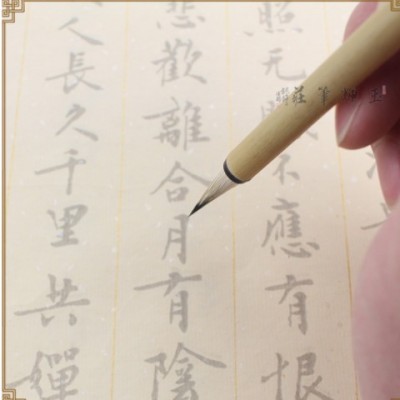 照无不應有恨
悲歡離合月有陰
人長久千里共嬋